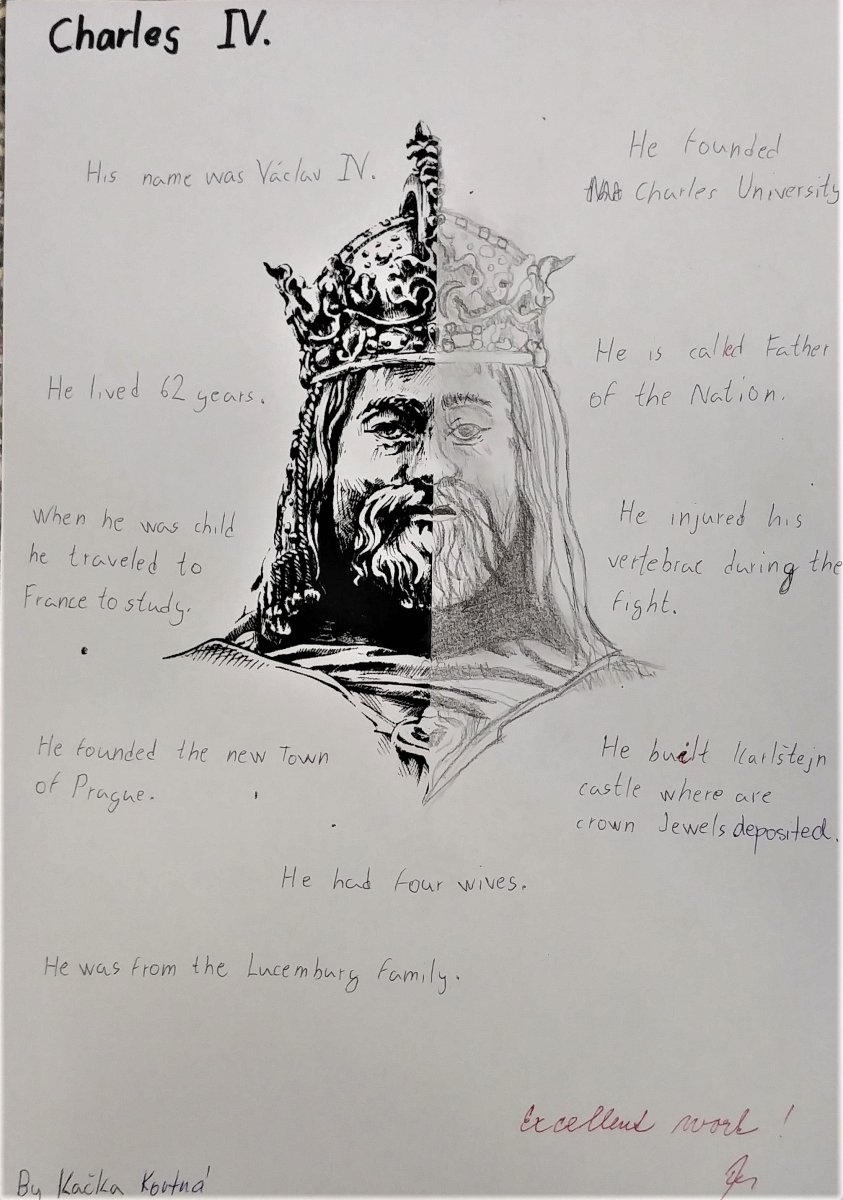 Charles IV.
His name was Václav IV.
He founded
Charles University
He lived 62 years.
He is called Father
of the Nation.
When he was child
he traveled to
France to study.
He injured his
vertebrae during the
fight.
He founded the new Town
of Prague.
He built Karlštejn
castle where are
crown Jewels deposited.
He had four wives.
He was from the Lucemburg family.
Excellent work!
By Kačka Kovtná